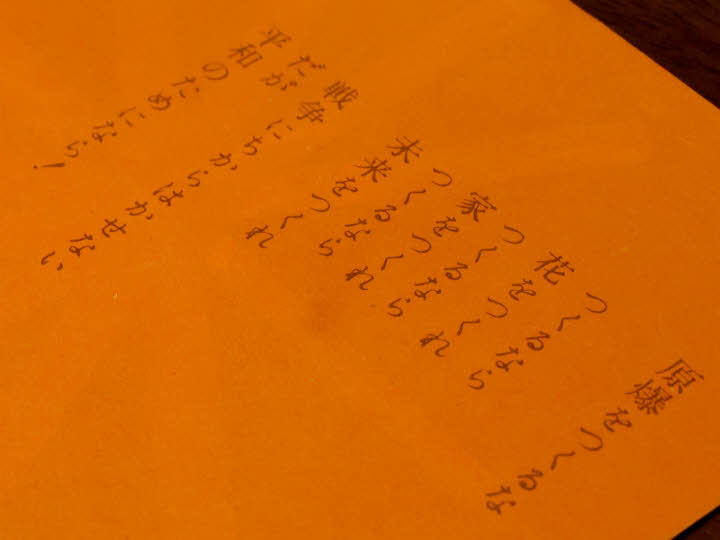 原爆をつくるな
つくるなら
花をつくれ
つくるなら
家をつくれ
つくるなら
未来をつくれ
戦争にちからはかせない
だが
平和のためになら！